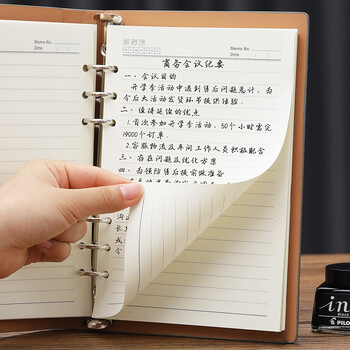 Memo No.
Date
Memo No.
Date
商务会议纪要
一、会议目的
开学季活动中遇到售后问题总计,为
今后大活动发货环节提供经验.
二、值得延续的优点
1.首次参加开学季活动,50个小时需完
19000个订单
2.客服物流及车间工作人员积极配合
三、存在问题及优化方案
四、为预防售后提前做准备
沟
长
点
in
PILO